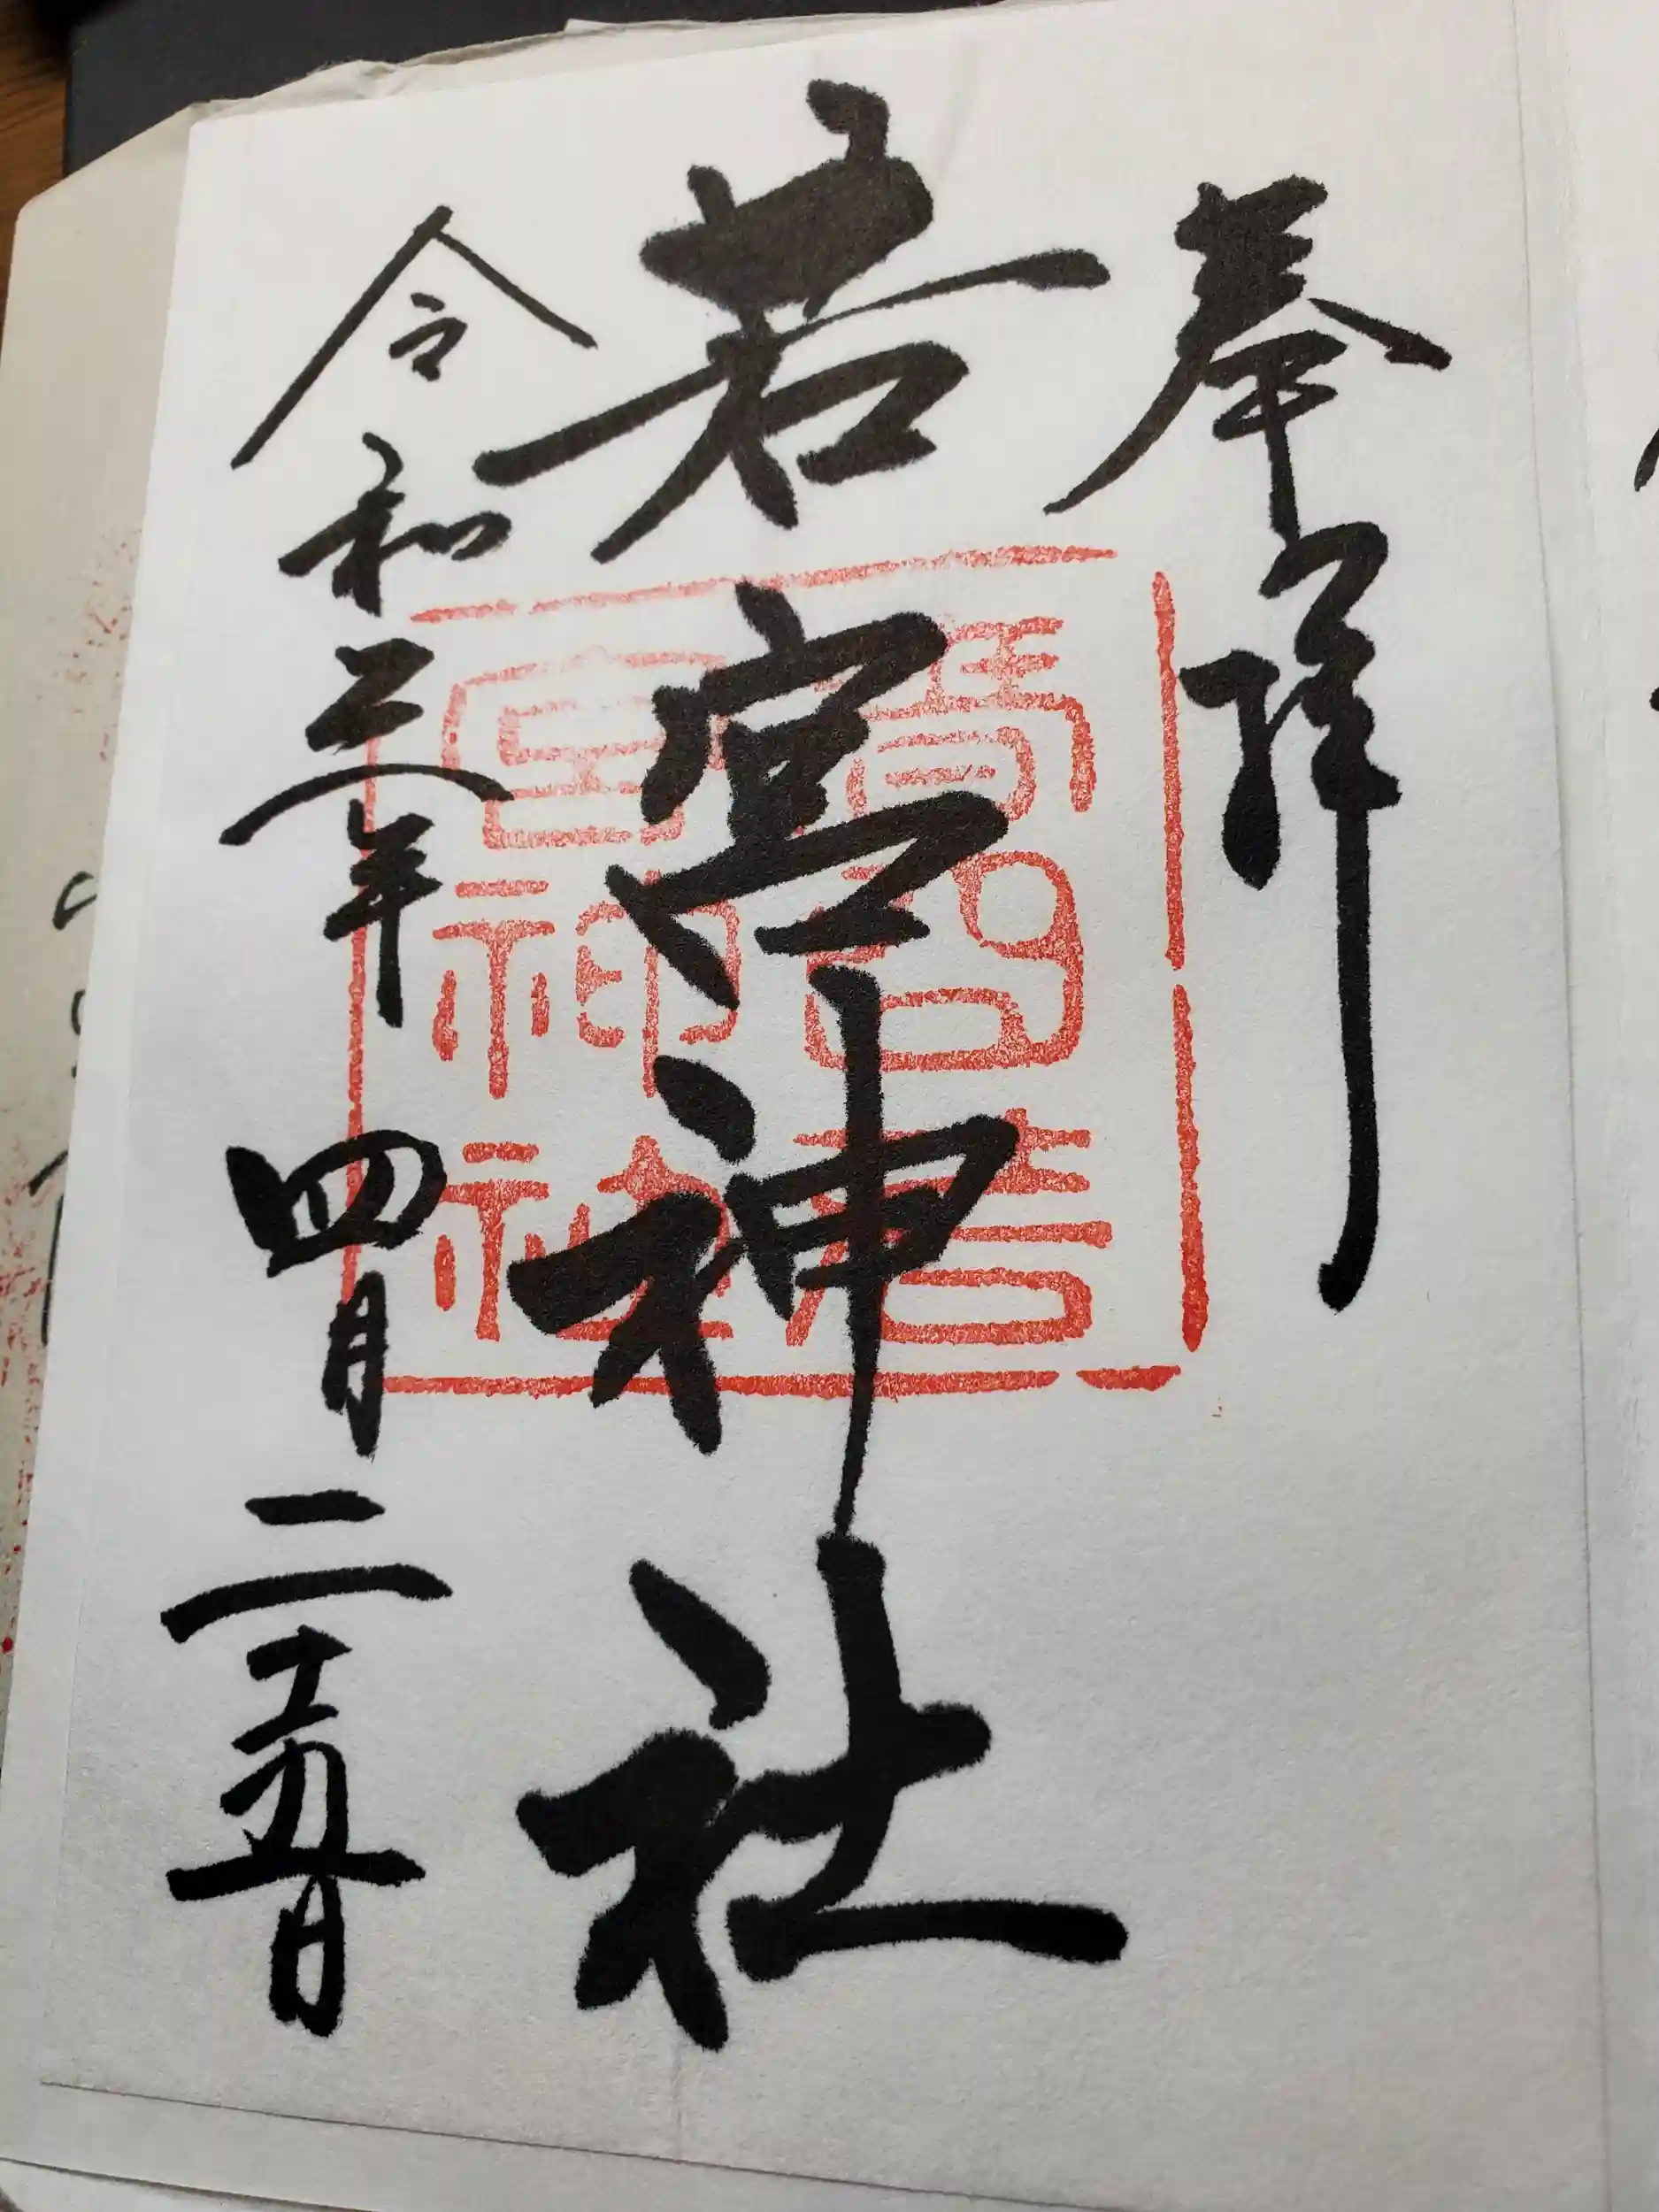 奉拝
若宮神社
令和三年四月二十五日
若
宮神社